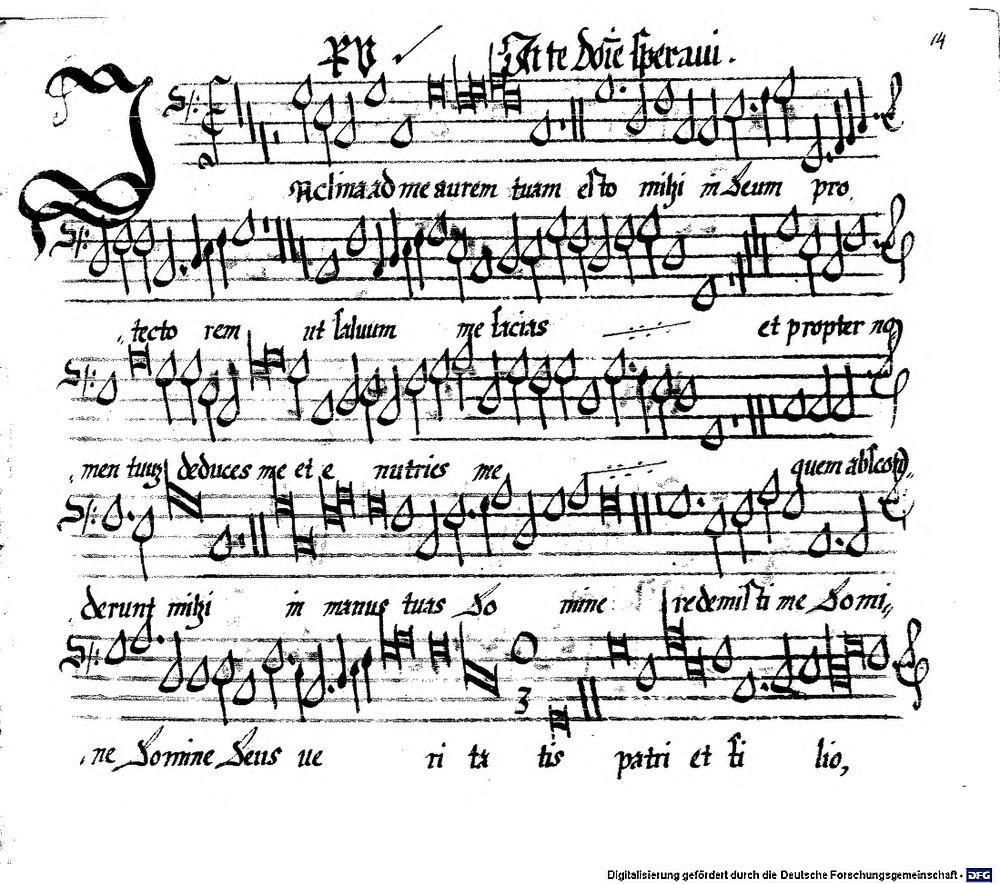 RV In te Dõie speravi. 14
INclina ad me aurem tuam esto mihi in Deum pro,
tecto rem ut salvum me facias et propter no
men tuũ deduces me et e nutries me quem abscon
derunt mihi in manus tuas Do mine redemisti me Domi,,
ne Domine Deus ve ri ta tis patri et fi lio,
3
Digitalisierung gefördert durch die Deutsche Forschungsgemeinschaft - DFG